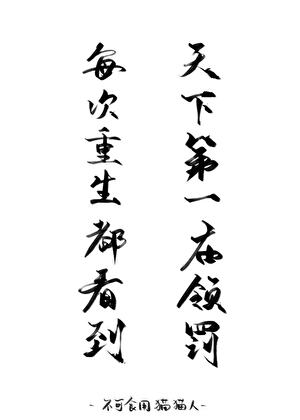 每次重生都看到
天下第一在领罚
- 不可食用猫猫人 -